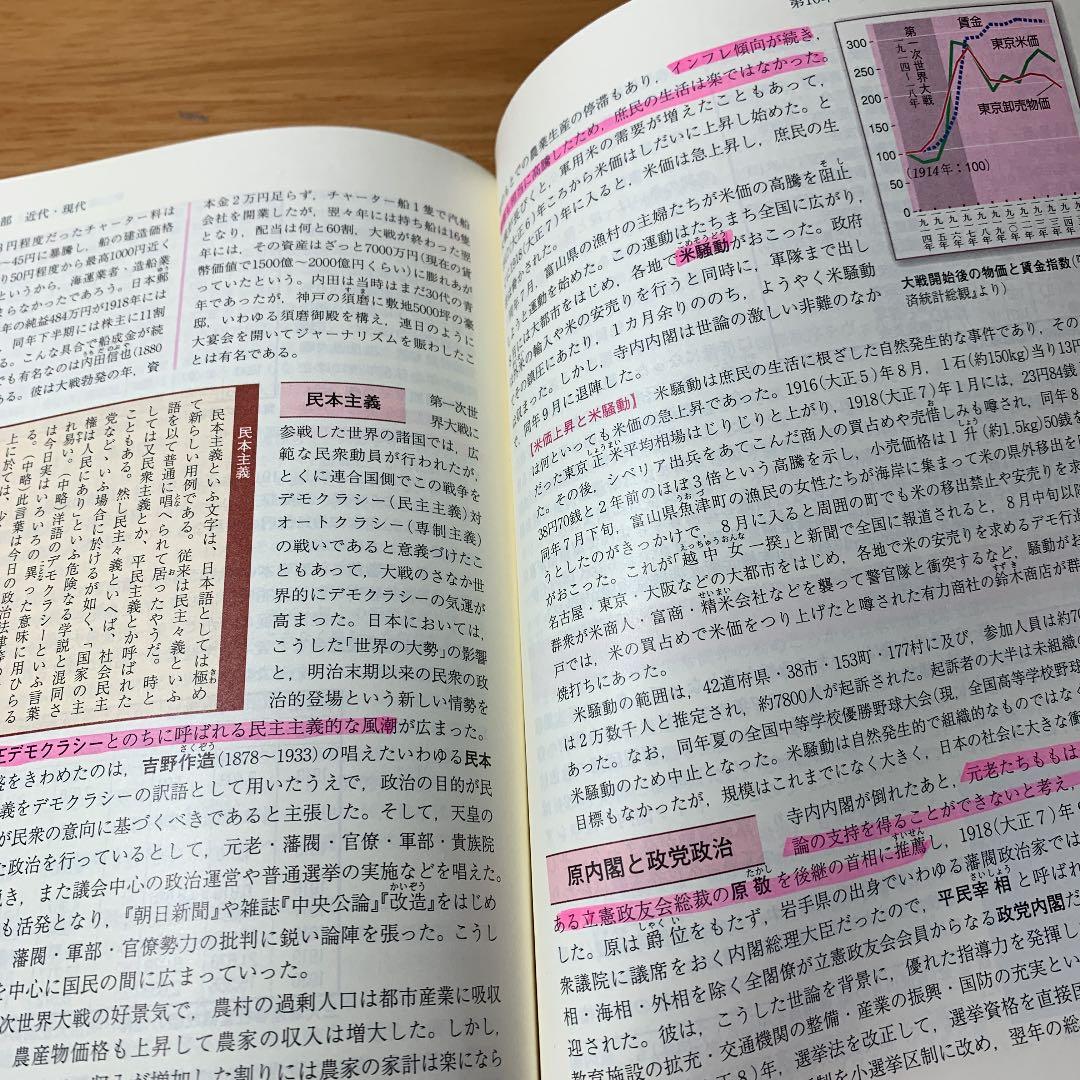 部 近代・現代
円程度だったチャーター料は
～45円に暴騰し，船の建造価格
50円程度から最高1000円近く
というから，海運業者・造船業
まらなかったであろう。日本郵
年の純益484万円が1918年には
同年下半期には株主に11割
る。こんな具合で船成金が続
でも有名なのは内田信也(1880
ある。彼は大戦勃発の年，資
本金2万円足らず，チャーター船1隻で汽船
会社を開業したが，翌々年には持ち船は16隻
となり，配当は何と60割，大戦が終わった翌
年には，その資産はざっと7000万円(現在の貨
幣価値で1500億～2000億円くらい)に膨れあが
っていたという。内田は当時はまだ30代の青
年であったが，神戸の須磨に敷地5000坪の豪
邸，いわゆる須磨御殿を構え，連日のように
大宴会を開いてジャーナリズムを賑わしたこ
とは有名である。
民本主義
民本主義といふ文字は、日本語としては極め
て新らしい用例である。従来は民主々義といふ
語を以て普通に唱へられて居ったやうだ。時と
しては又民衆主義とか、平民主義とか呼ばれた
こともある。然し民主々義といへば、社会民主
党など、いふ場合に於けるが如く、「国家の主
権は人民にあり」といふ危険なる学説と混同さ
れ易い。(中略)洋語のデモクラシーといふ言葉
は今日実はいろいろの異った意味に用ひらる
る。(中略)此言葉は今日の政治法律
上に於ては、
民本主義
第一次世
界大戦に
参戦した世界の諸国では，広
範な民衆動員が行われたが，
とくに連合国側でこの戦争を
デモクラシー(民主主義)対
オートクラシー(専制主義)
の戦いであると意義づけたこ
ともあって，大戦のさなか世
界的にデモクラシーの気運が
高まった。日本においては，
こうした「世界の大勢」の影響
と，明治末期以来の民衆の政
治的登場という新しい情勢を
デモクラシーとのちに呼ばれる民主主義的な風潮が広まった。
をきわめたのは，吉野作造(1878～1933)の唱えたいわゆる民本
義をデモクラシーの訳語として用いたうえで，政治の目的が民
が民衆の意向に基づくべきであると主張した。そして，天皇の
た政治を行っているとして，元老・藩閥・官僚・軍部・貴族院
き，また議会中心の政治運営や普通選挙の実施などを唱えた。
も活発となり，『朝日新聞』や雑誌『中央公論』『改造』をはじめ
藩閥・軍部・官僚勢力の批判に鋭い論陣を張った。こうし
を中心に国民の間に広まっていった。
次世界大戦の好景気で，農村の過剰人口は都市産業に吸収
農産物価格も上昇して農家の収入は増大した。しかし，
収入が増加した割りには農家の家計は楽になら
での農業生産の停滞もあり，インフレ傾向が続き，
に高騰したため，庶民の生活は楽ではなかった。
びくと，軍用米の需要が増えたこともあって，
(大正6)年ころから米価はしだいに上昇し始めた。と
1918(大正7)年に入ると，米価は急上昇し，庶民の生
年7月，富山県の漁村の主婦たちが米価の高騰を阻止
ようと運動を始めた。この運動はたちまち全国に広がり，
月には大都市をはじめ，各地で米騒動がおこった。政府
米の輸入や米の安売りを行うと同時に，軍隊まで出し
の鎮圧にあたり，1カ月余りののち，ようやく米騒動
収まった。しかし，寺内内閣は世論の激しい非難のなか
で，同年9月に退陣した。
賃金
東京米価
東京卸売物価
第一次世界大戦
一九一四～一八年
300
250
200
150
100
50
0
(1914年：100)
大戦開始後の物価と賃金指数(
済統計総観』より)
【米価上昇と米騒動】 米騒動は庶民の生活に根ざした自然発生的な事件であり，その
は何といっても米価の急上昇であった。1916(大正5)年8月，1石(約150kg)当り13円
だった東京正米平均相場はじりじりと上がり，1918(大正7)年1月には，23円84銭
その後，シベリア出兵をあてこんだ商人の買占めや売惜しみも噂され，同年8
38円70銭と2年前のほぼ3倍という高騰を示し，小売価格は1升(約1.5kg)50銭を
同年7月下旬，富山県魚津町の漁民の女性たちが海岸に集まって米の県外移出を阻
うとしたのがきっかけで，8月に入ると周囲の町でも米の移出禁止や安売りを求
がおこった。これが「越中女一揆」と新聞で全国に報道されると，8月中旬以降
名古屋・東京・大阪などの大都市をはじめ，各地で米の安売りを求めるデモ行進
群衆が米商人・富商・精米会社などを襲って警官隊と衝突するなど，騒動がお
戸では，米の買占めで米価をつり上げたと噂された有力商社の鈴木商店が群
焼打ちにあった。
米騒動の範囲は，42道府県・38市・153町・177村に及び，参加人員は約70
は2万数千人と推定され，約7800人が起訴された。起訴者の大半は未組織
あった。なお，同年夏の全国中等学校優勝野球大会(現，全国高等学校野球
米騒動のため中止となった。米騒動は自然発生的で組織的なものではな
目標もなかったが，規模はこれまでになく大きく，日本の社会に大きな衝
原内閣と政党政治
寺内内閣が倒れたあと，元老たちももは
論の支持を得ることができないと考え，
ある立憲政友会総裁の原敬を後継の首相に推薦し，1918(大正7)年9
した。原は爵位をもたず，岩手県の出身でいわゆる藩閥政治家では
衆議院に議席をおく内閣総理大臣だったので，平民宰相と呼ばれ
相・海相・外相を除く全閣僚が立憲政友会会員からなる政党内閣だ
迎された。彼は，こうした世論を背景に，優れた指導力を発揮し
教育施設の拡充・交通機関の整備・産業の振興・国防の充実とい
8)年，選挙法を改正して，選挙資格を直接国
を小選挙区制に改め，翌年の総